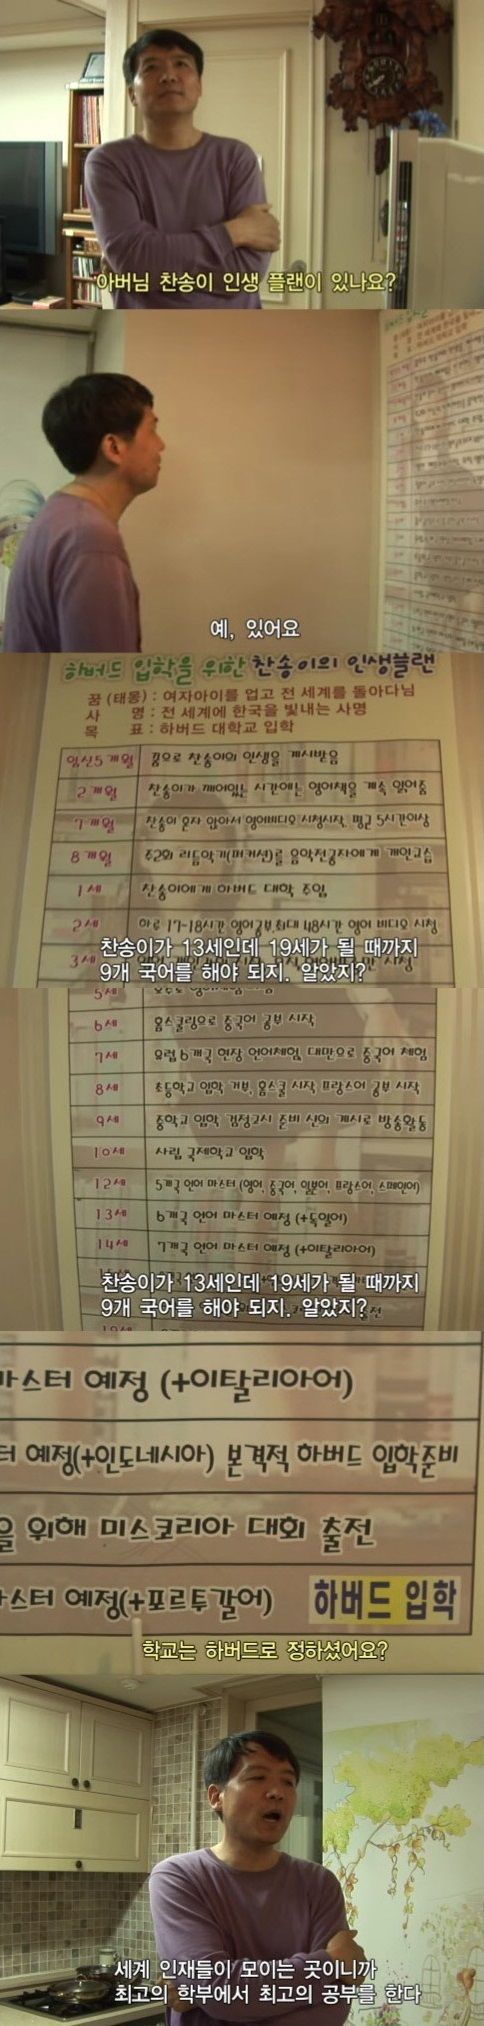 아버님 찬송이 인생 플랜이 있나요?
하버드 대학교 입학
예, 있어요
하버드 입학을 위한 찬송이의 인생플랜
꿈 (태몽) : 여자아이를 업고 전 세계를 돌아다님
사 명 : 전 세계에 한국을 빛내는 사명
목 표 : 하버드 대학교 입학
임신5개월 꿈으로 찬송이의 인생을 계시받음
2개월 찬송이가 깨어있는 시간에는 영어책을 계속 읽어줌
7개월 찬송이 혼자 앉아서 영어비디오 시청시작, 평균 5시간이상
8개월 주2회 리듬악기(퍼커션)를 음악전공자에게 개인교습
1세 찬송이에게 하버드 대학 주입
2세 하루 17-18시간 영어공부,최대 48시간 영어 비디오 시청
3세
찬송이가 13세인데 19세가 될 때까지
9개 국어를 해야 되지. 알았지?
5세
6세 홈스쿨링으로 중국어 공부 시작
7세 유럽 6개국 현장 언어체험, 대만으로 중국어 체험
8세 초등학교 입학 거부, 홈스쿨 시작 프랑스어 공부 시작
9세 중학교 입학 검정고시 준비 신의 계시로 방송활동
10세 사립 국제학교 입학
12세 5개국 언어 마스터 (영어, 중국어, 일본어, 프랑스어, 스페인어)
13세 6개국 언어 마스터 예정 (+독일어)
14세 7개국 언어 마스터 예정 (+이탈리아어)
찬송이가 13세인데 19세가 될 때까지
9개 국어를 해야 되지. 알았지?
출전
마스터 예정 (+이탈리아어)
터 예정(+인도네시아) 본격적 하버드 입학준비
을 위해 미스코리아 대회 출전
마스터 예정(+포르투갈어) 하버드 입학
학교는 하버드로 정하셨어요?
세계 인재들이 모이는 곳이니까
최고의 학부에서 최고의 공부를 한다